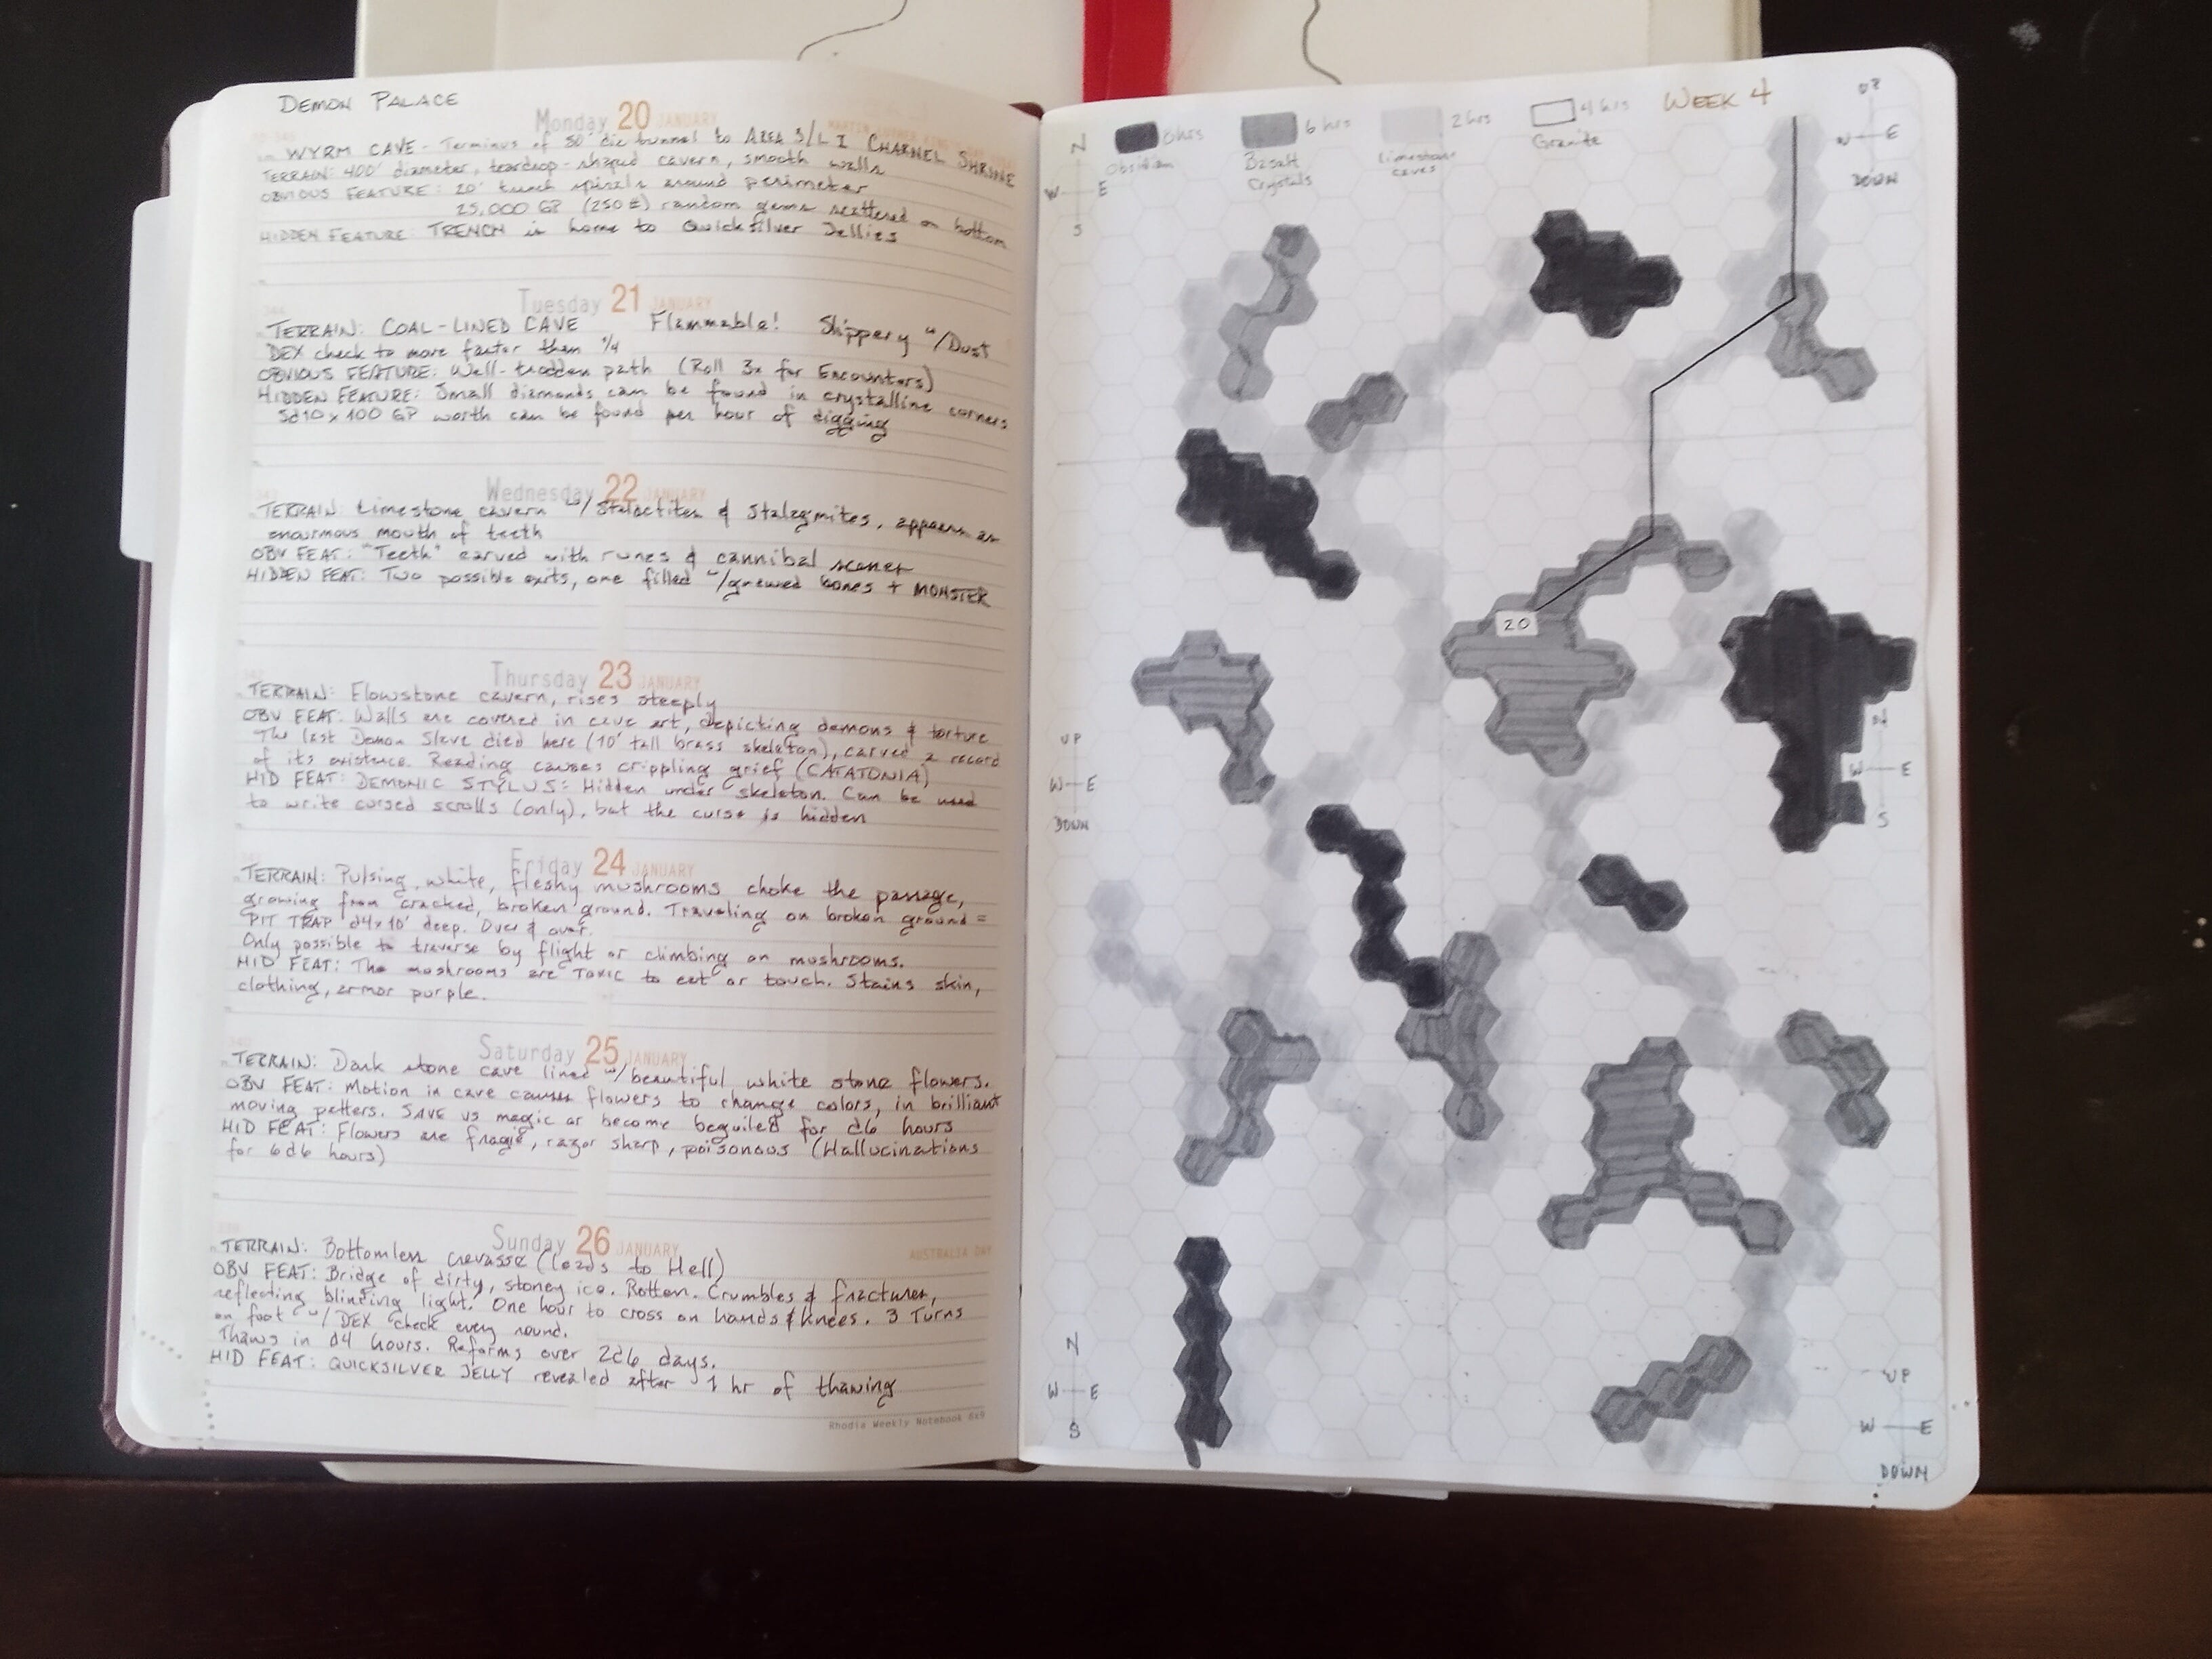 DEMON PALACE
Monday 20 JANUARY
WYRM CAVE - Terminus of 80' dia tunnel to AREA 3/L I CHARNEL SHRINE
TERRAIN: 400' diameter, teardrop-shaped cavern, smooth walls
OBVIOUS FEATURE: 20' trench spirals around perimeter
25,000 GP (250 #) random gems scattered on bottom
HIDDEN FEATURE: TRENCH is home to Quicksilver Jellies
Tuesday 21 JANUARY
TERRAIN: COAL-LINED CAVE Flammable! Slippery w/Dust
DEX check to move faster than 1/4
OBVIOUS FEATURE: Well-trodden path (Roll 3x for Encounters)
HIDDEN FEATURE: Small diamonds can be found in crystalline corners
5d10 x 100 GP worth can be found per hour of digging
Wednesday 22 JANUARY
TERRAIN: Limestone cavern w/ Stalactites & Stalagmites, appears as
enormous mouth of teeth
OBV FEAT: "Teeth" carved with runes & cannibal scenes
HIDDEN FEAT: Two possible exits, one filled w/gnawed bones + MONSTER
Thursday 23 JANUARY
TERRAIN: Flowstone cavern, rises steeply
OBV FEAT: Walls are covered in cave art, depicting demons & torture
The last Demon Slave died here (10' tall brass skeleton), carved a record
of its existence. Reading causes crippling grief (CATATONIA)
HID FEAT: DEMONIC STYLUS = Hidden under skeleton. Can be used
to write cursed scrolls (only), but the curse is hidden
Friday 24 JANUARY
TERRAIN: Pulsing, white, fleshy mushrooms choke the passage,
growing from cracked, broken ground. Traveling on broken ground =
PIT TRAP d4x10' deep. Over & over.
Only possible to traverse by flight or climbing on mushrooms.
HID FEAT: The mushrooms are TOXIC to eat or touch. Stains skin,
clothing, armor purple.
Saturday 25 JANUARY
TERRAIN: Dark stone cave lined w/beautiful white stone flowers.
OBV FEAT: Motion in cave causes flowers to change colors, in brilliant
moving patters. SAVE vs magic or become beguiled for d6 hours
HID FEAT: Flowers are fragile, razor sharp, poisonous (Hallucinations
for 6d6 hours)
Sunday 26 JANUARY
AUSTRALIA DAY
TERRAIN: Bottomless crevasse (leads to Hell)
OBV FEAT: Bridge of dirty, stoney ice. Rotten. Crumbles & fractures,
reflecting blinding light. One hour to cross on hands & knees. 3 Turns
on foot w/ DEX check every round.
Thaws in d4 hours. Reforms over 2d6 days.
HID FEAT: QUICKSILVER JELLY revealed after 1 hr of thawing
Rhodia Weekly Notebook 6x9
8hrs
Obsidian
6 hrs
Basalt
Crystals
2 hrs
limestone
caves
4 hrs
Granite
WEEK 4
N
W E
S
UP
W E
DOWN
20
UP
W E
DOWN
N
W E
S
N
W E
S
UP
W E
DOWN